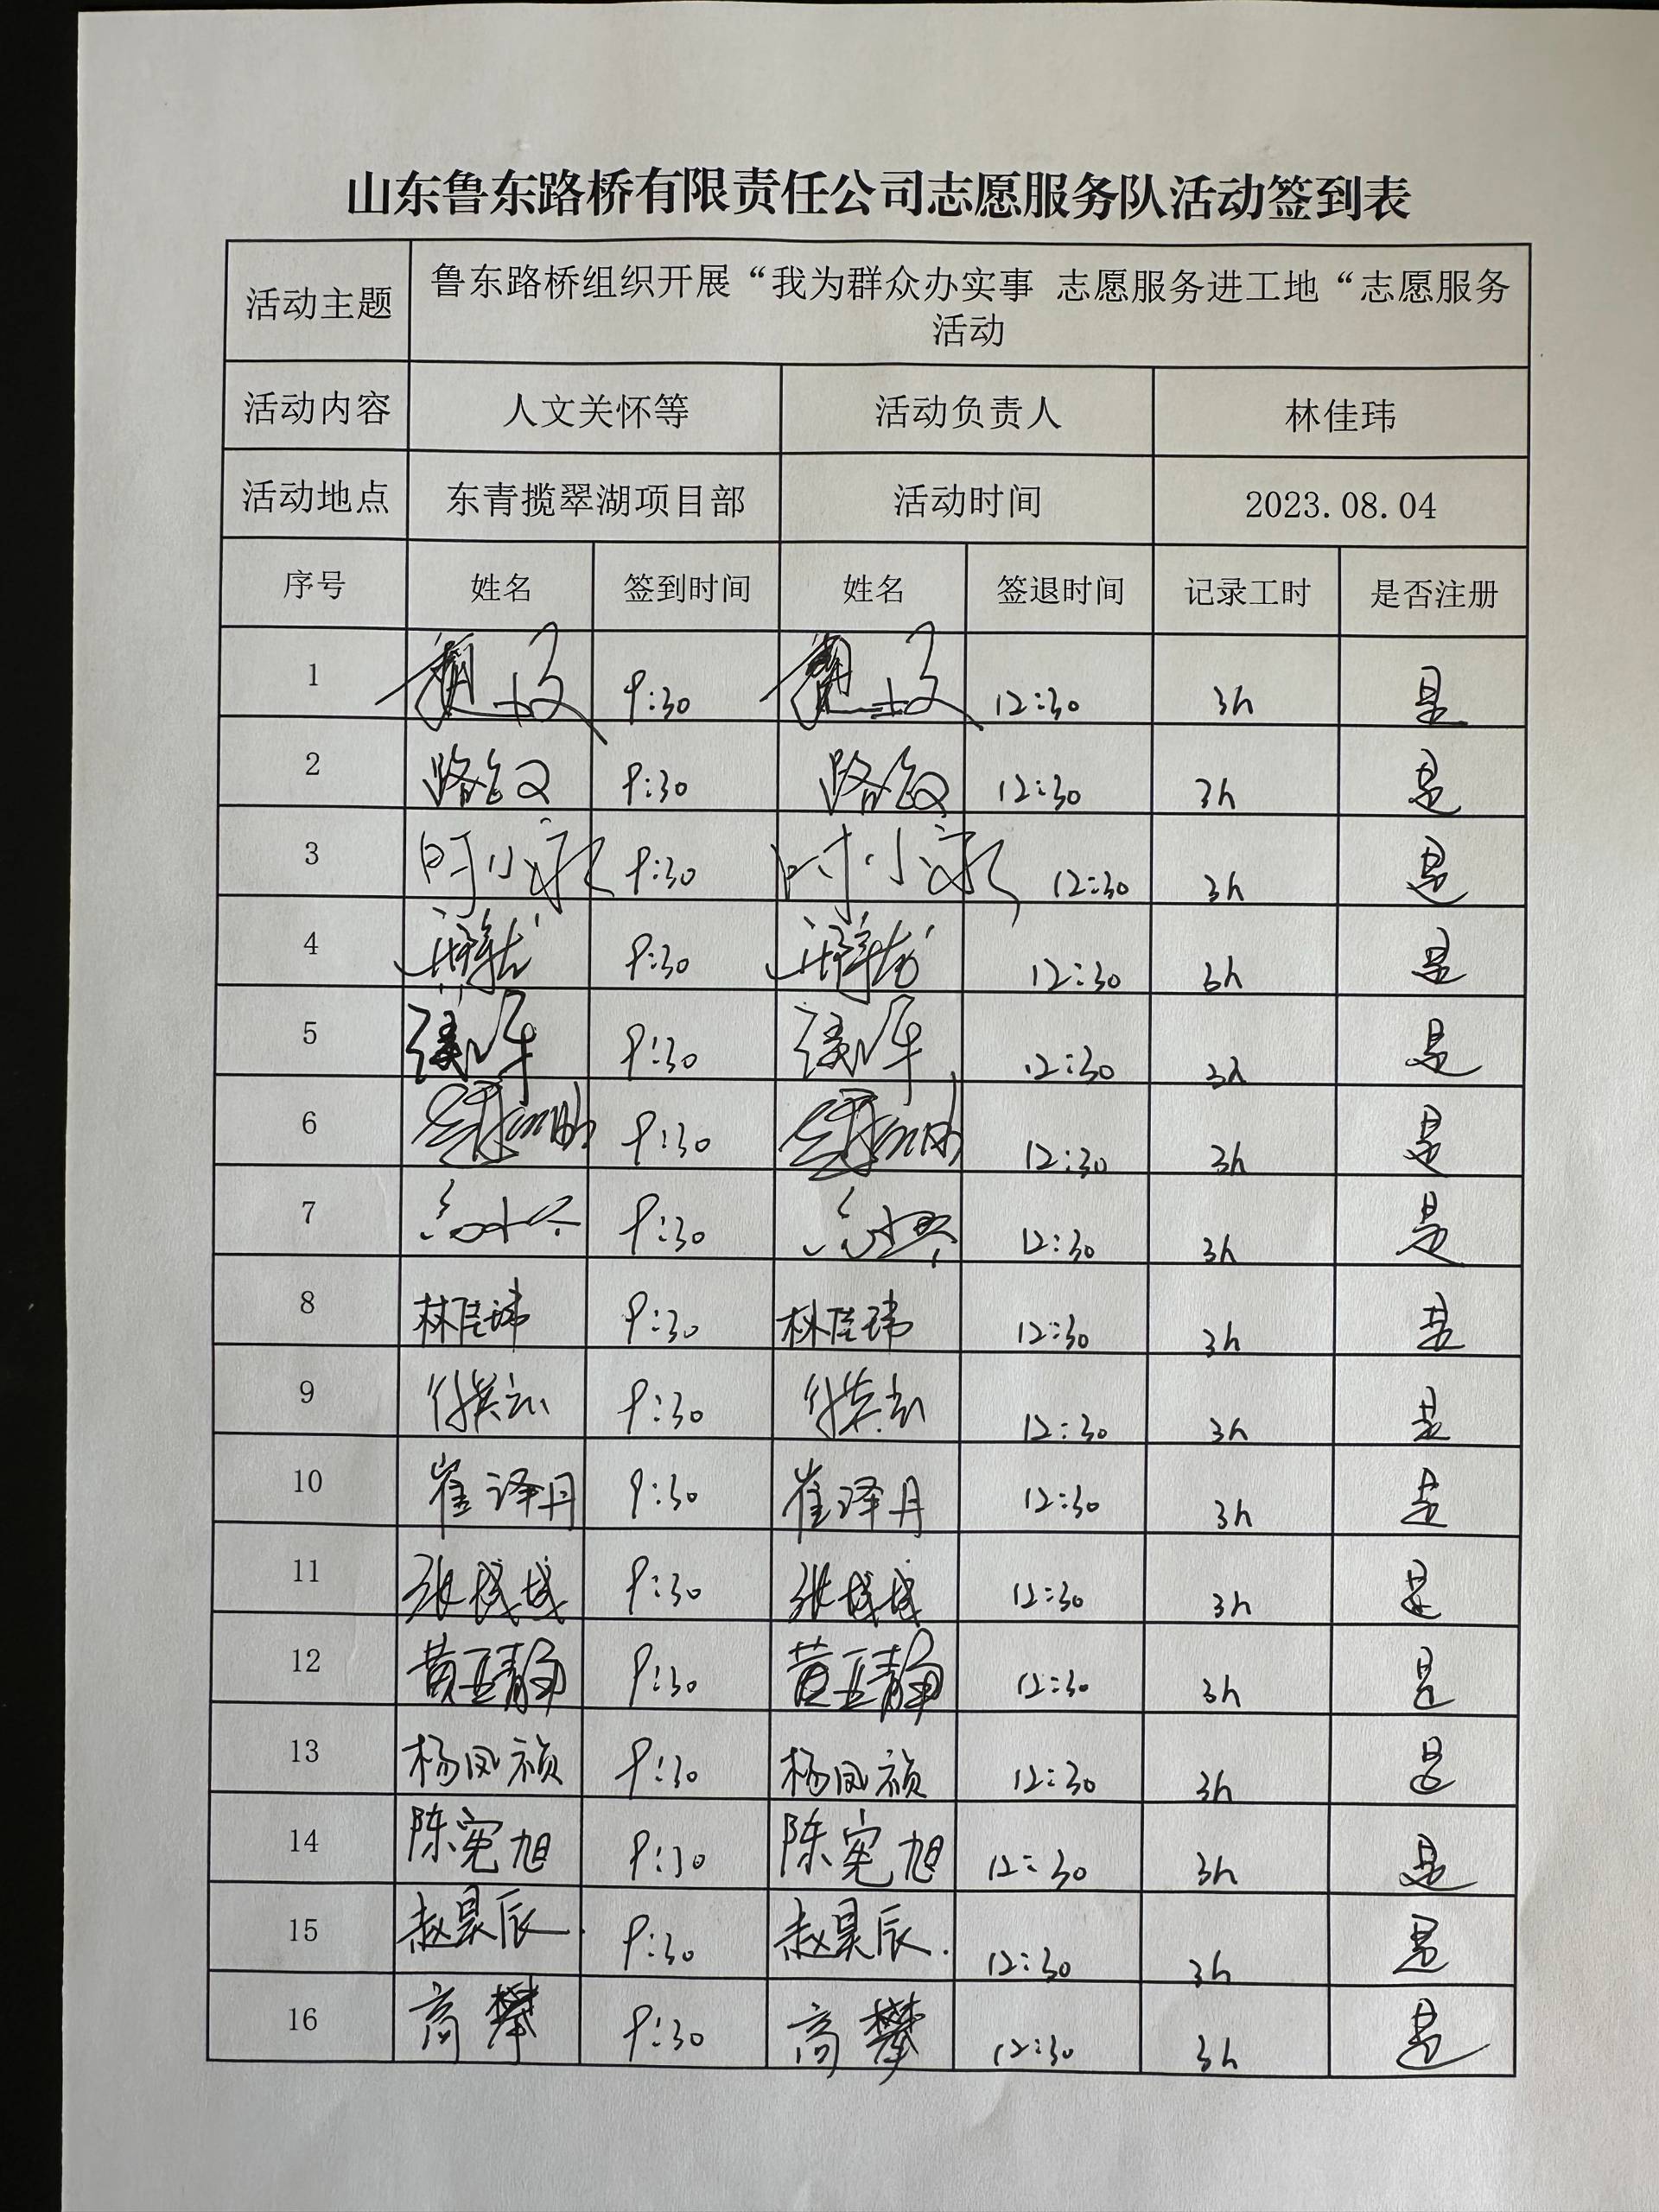 山东鲁东路桥有限责任公司志愿服务队活动签到表
活动主题 鲁东路桥组织开展“我为群众办实事 志愿服务进工地“志愿服务
活动
活动内容 人文关怀等 活动负责人 林佳玮
活动地点 东青揽翠湖项目部 活动时间 2023.08.04
序号 姓名 签到时间 姓名 签退时间 记录工时 是否注册
1 9:30 12:30 3h 是
2 9:30 12:30 3h 是
3 9:30 12:30 3h 是
4 9:30 12:30 3h 是
5 9:30 12:30 3h 是
6 9:30 12:30 3h 是
7 9:30 12:30 3h 是
8 林佳玮 9:30 林佳玮 12:30 3h 是
9 9:30 12:30 3h 是
10 崔译丹 9:30 崔译丹 12:30 3h 是
11 9:30 12:30 3h 是
12 黄亚静 9:30 黄亚静 12:30 3h 是
13 杨凤祯 9:30 杨凤祯 12:30 3h 是
14 陈宪旭 9:30 陈宪旭 12:30 3h 是
15 赵昊辰 9:30 赵昊辰 12:30 3h 是
16 高攀 9:30 高攀 12:30 3h 是